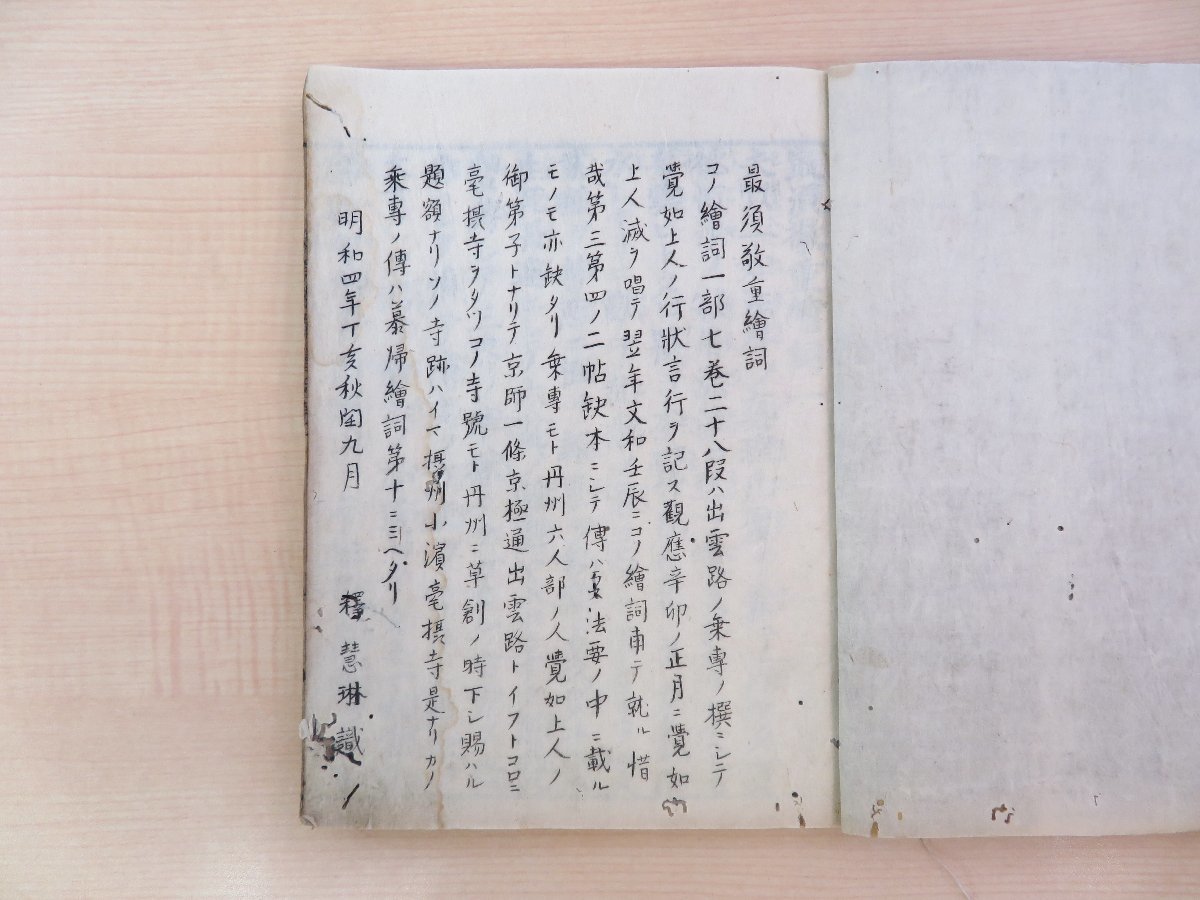 最須敬重繪詞
コノ繪詞一部七巻二十八段ハ出雲路ノ乗専ノ撰ニシテ
覺如上人ノ行狀言行ヲ記ス觀應辛卯ノ正月ニ覺如
上人滅ヲ唱テ翌年文和壬辰ニコノ繪詞甫テ就ル惜
哉第三第四ノ二帖缺本ニシテ傳ハ法要ノ中ニ載ル
モノモ亦缺タリ乗專モト丹州六人部ノ人覺如上人ノ
御第子トナリテ京師一條京極通出雲路トイフトコロニ
毫摂寺ヲタツコノ寺號モト丹州ニ草創ノ時下シ賜ハル
題額ナリソノ寺跡ハイマ摂州小濱毫摂寺是ナリカノ
乗専ノ傳ハ慕帰繪詞第十ニミヘタリ
明和四年丁亥秋閏九月
釋慧琳識